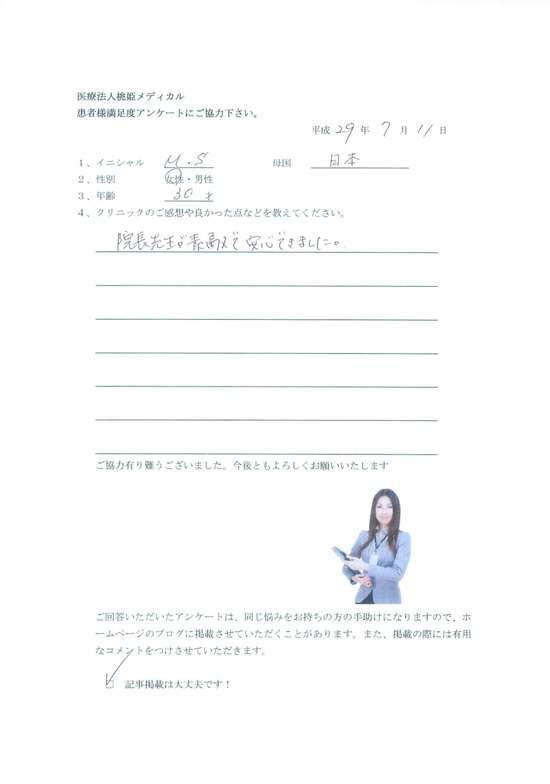 医療法人桃姫メディカル
患者様満足度アンケートにご協力下さい。
平成 29 年 7 月 11 日
1、イニシャル M.S 母国 日本
2、性別 女性・男性
3、年齢 30 才
4、クリニックのご感想や良かった点などを教えてください。
院長先生が素高で 安心できました。
ご協力有り難うございました。今後ともよろしくお願いいたします
ご回答いただいたアンケートは、同じ悩みをお持ちの方の手助けになりますので、ホ
ームページのブログに掲載させていただくことがあります。また、掲載の際には有用
なコメントをつけさせていただきます。
□ 記事掲載は大丈夫です！